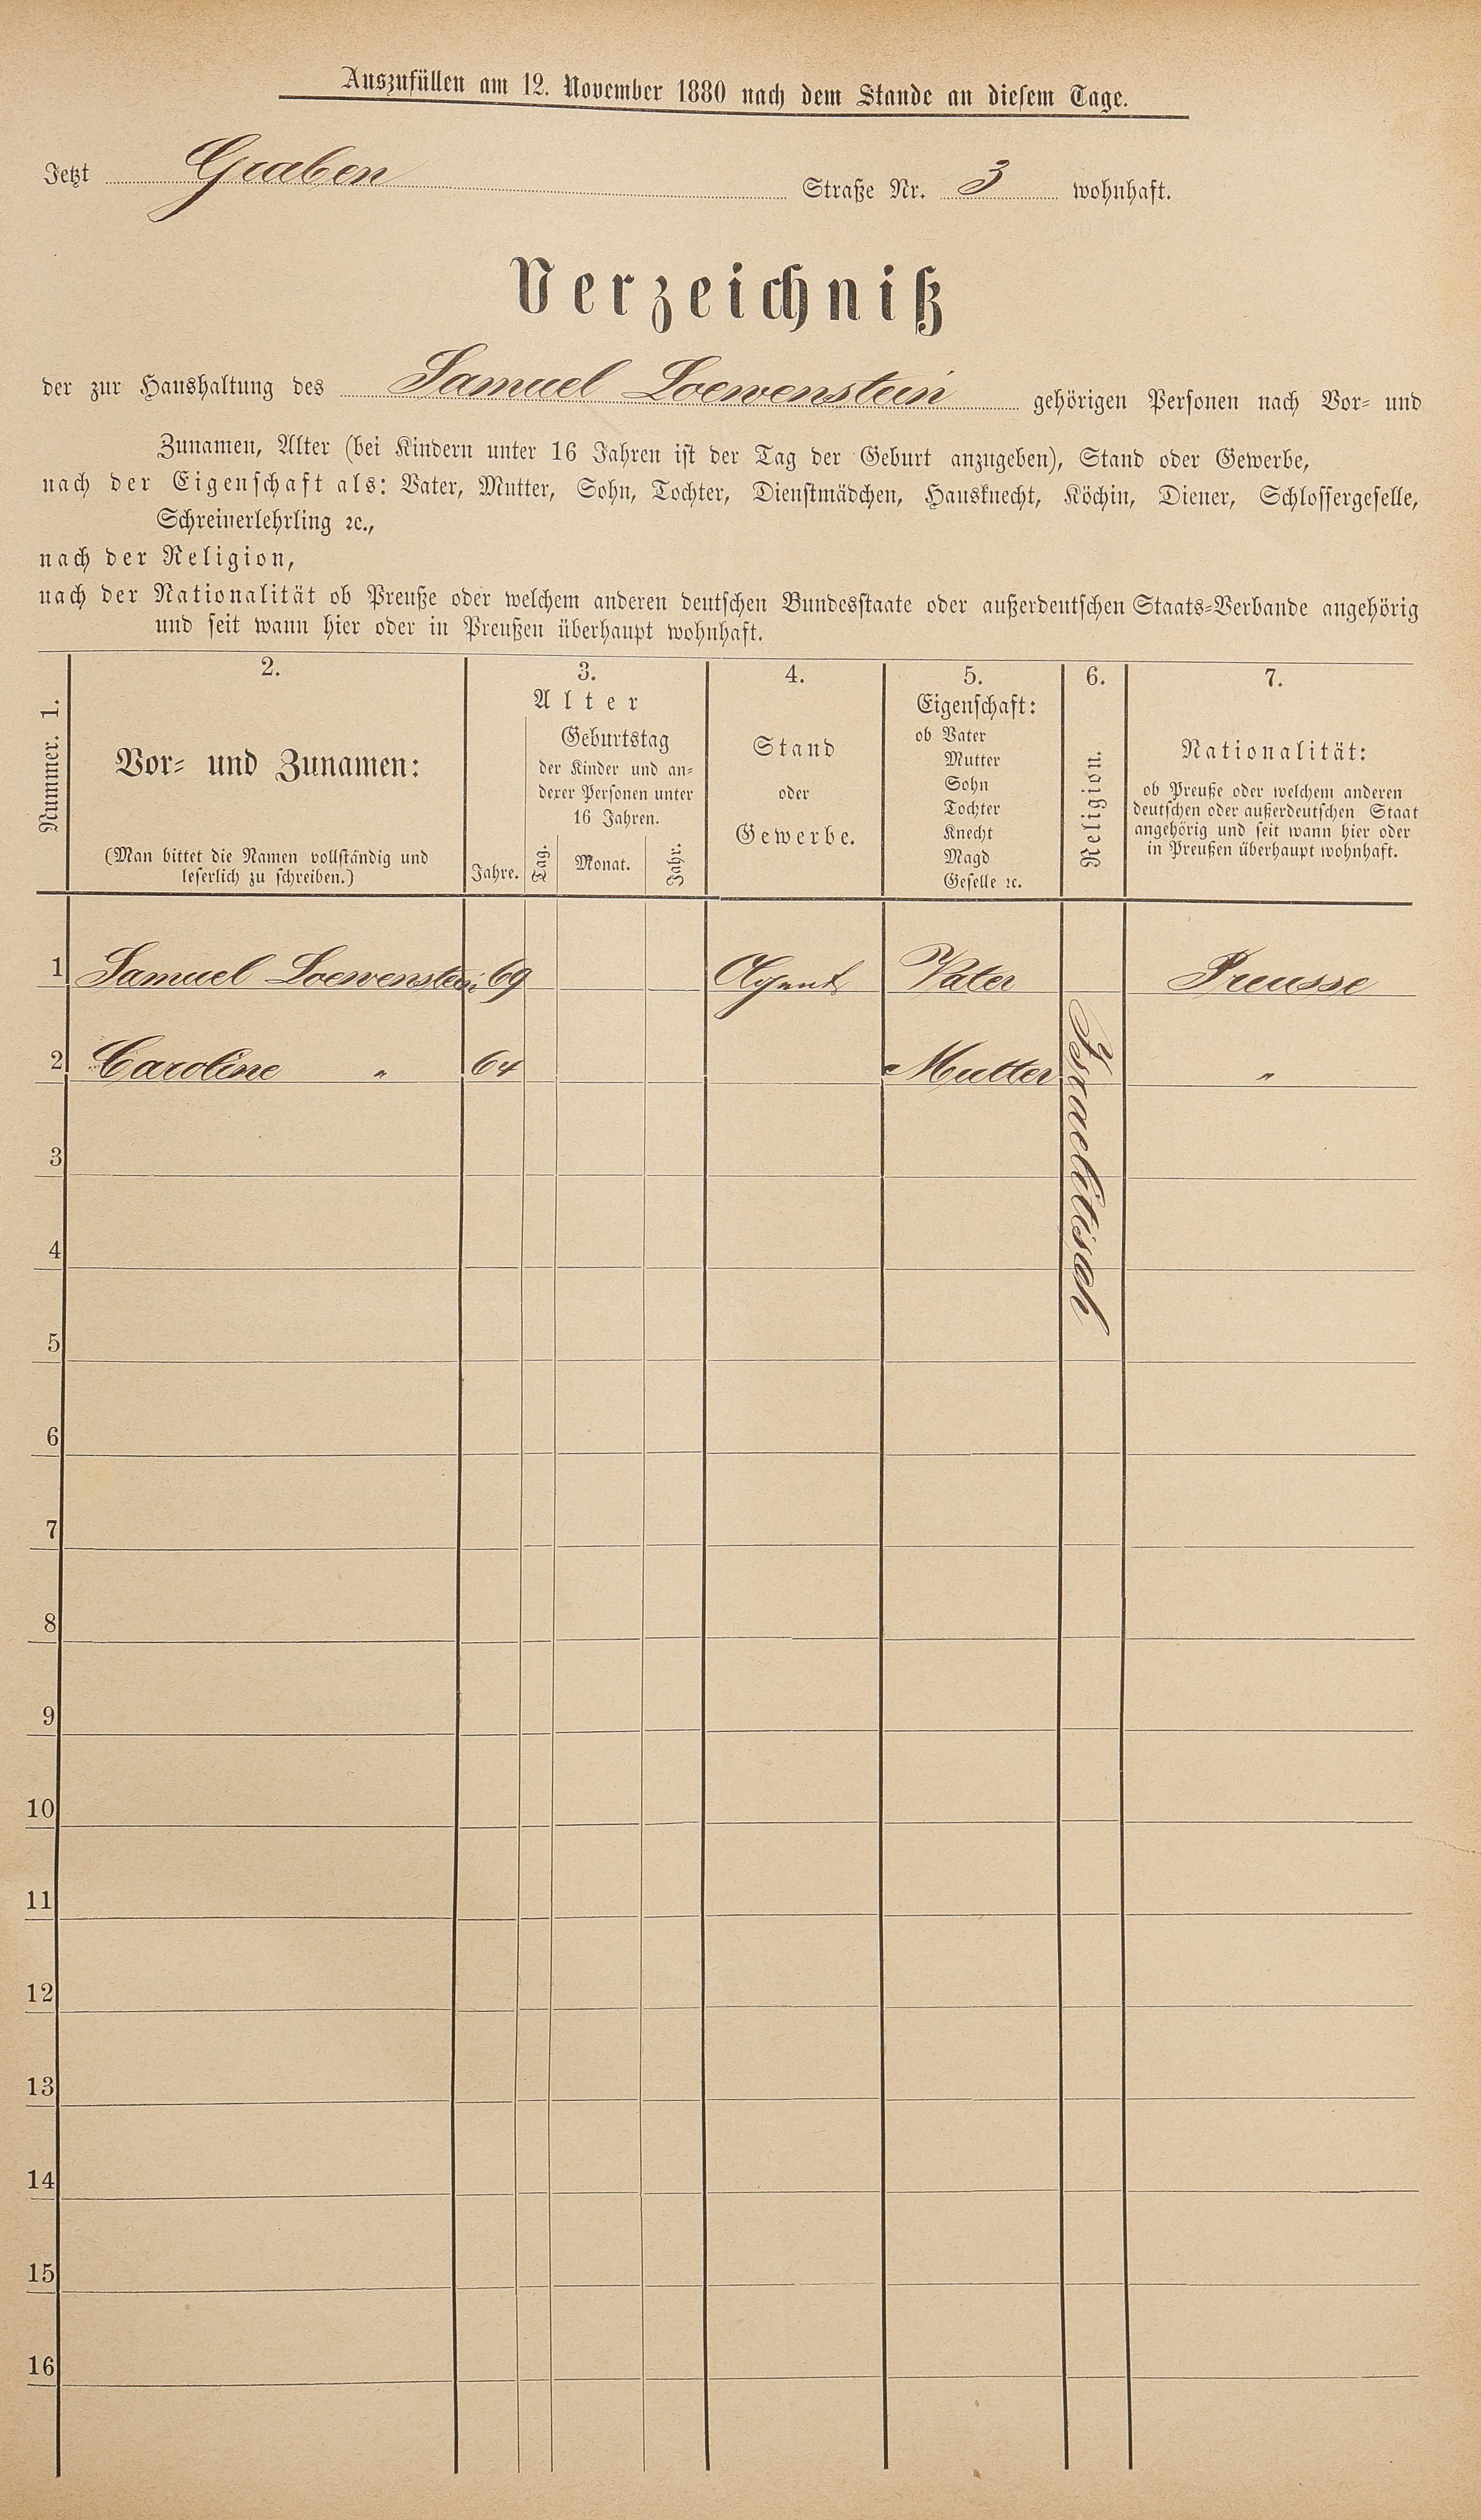 Auszufüllen am 12. November 1880 nach dem Stande an diesem Tage.
Jetzt Graben Straße Nr. 3 wohnhaft.
Verzeichniß
der zur Haushaltung des Samuel Loewenstein gehörigen Personen nach Vor- und
Zunamen, Alter (bei Kindern unter 16 Jahren ist der Tag der Geburt anzugeben), Stand oder Gewerbe,
nach der Eigenschaft als: Vater, Mutter, Sohn, Tochter, Dienstmädchen, Hausknecht, Köchin, Diener, Schlossergeselle,
Schreinerlehrling ꝛc.,
nach der Religion,
nach der Nationalität ob Preuße oder welchem anderen deutschen Bundesstaate oder außerdeutschen Staats-Verbande angehörig
und seit wann hier oder in Preußen überhaupt wohnhaft.
Nummer. 1.
2.
Vor- und Zunamen:
(Man bittet die Namen vollständig und
leserlich zu schreiben.)
3.
Alter
Geburtstag
der Kinder und an-
derer Personen unter
16 Jahren.
Jahre. Tag. Monat. Jahr.
4.
Stand
oder
Gewerbe.
5.
Eigenschaft:
ob Vater
Mutter
Sohn
Tochter
Knecht
Magd
Geselle ꝛc.
6.
Religion.
7.
Nationalität:
ob Preuße oder welchem anderen
deutschen oder außerdeutschen Staat
angehörig und seit wann hier oder
in Preußen überhaupt wohnhaft.
1 Samuel Loewenstein 69 Agent Vater Preusse
2 Caroline " 64 Mutter "
Israelitisch
3
4
5
6
7
8
9
10
11
12
13
14
15
16